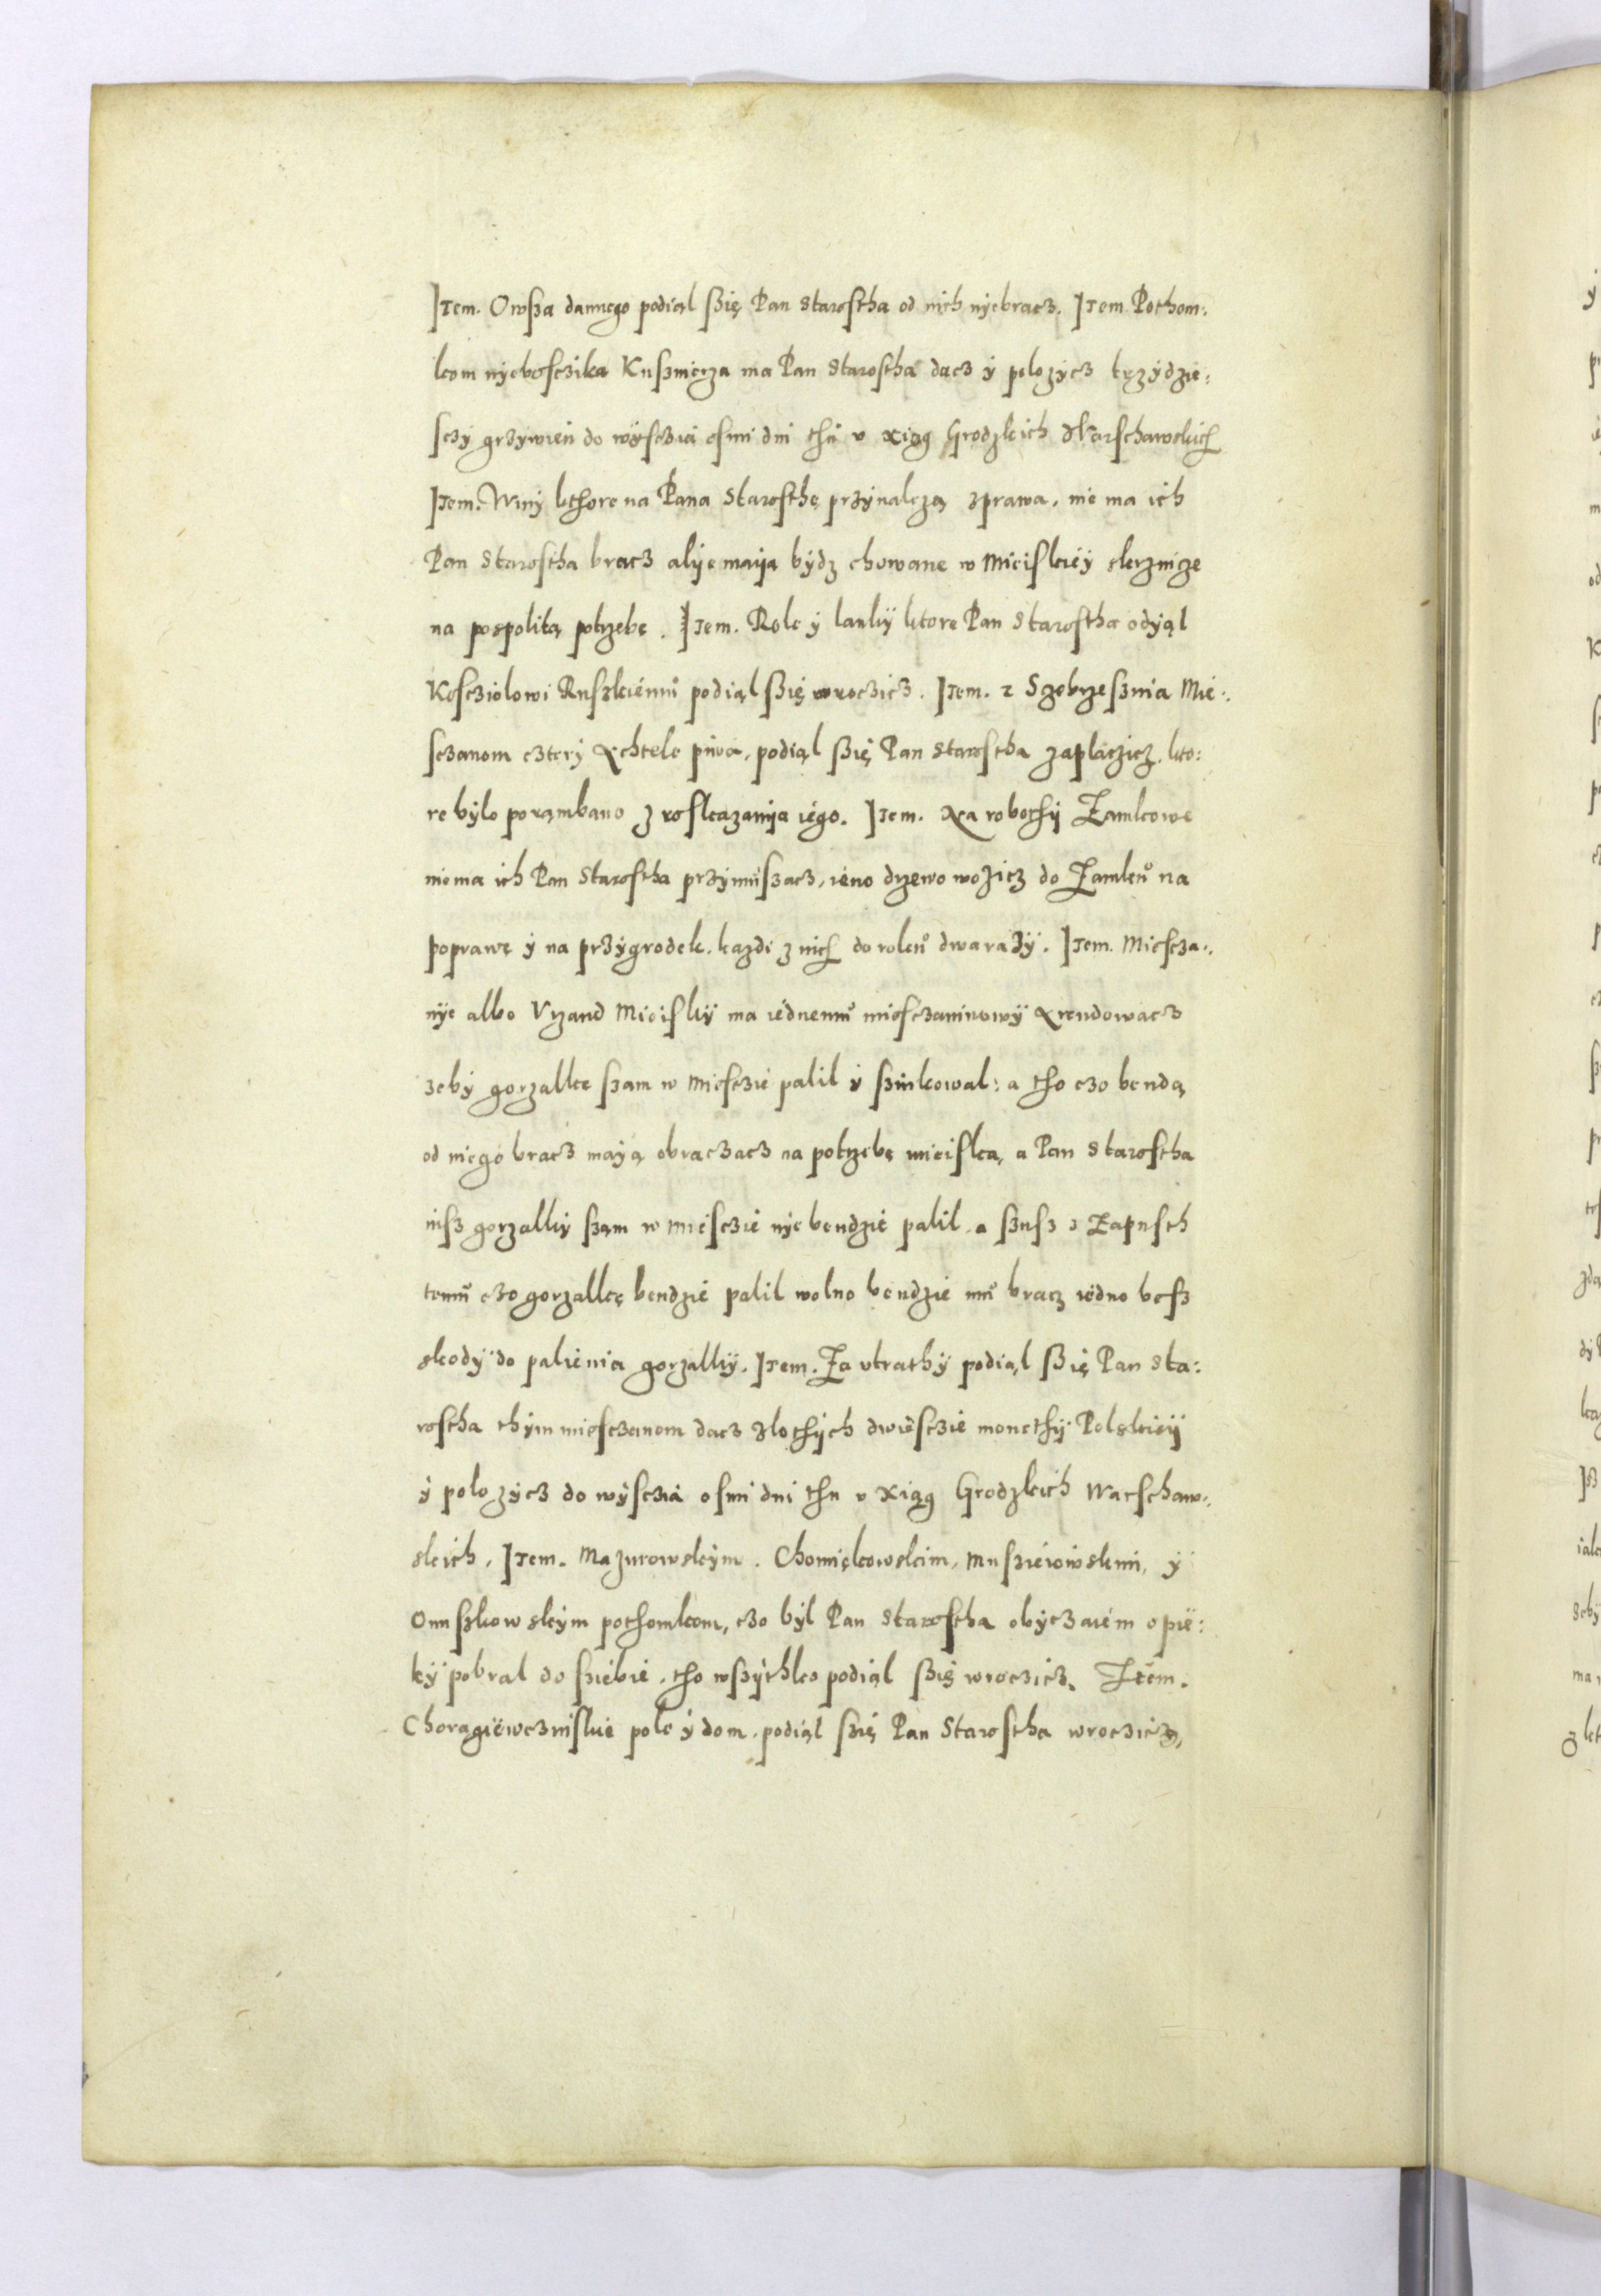 Item. Owsza dannego podiąl ßię Pan Starostha od nich nyebracz. Item Pothom:
kom nyeboscżika Kuszmerza ma Pan Starostha dacz ÿ położycz trzÿdzie:
sczÿ grzÿwien do wÿsczia osmi dni thu v xiąg Grodzkich Warschawskich
Item. Winÿ kthore na Pana Starosthę przÿnależą sprawa, nie ma ich
Pan Starostha bracz alye maią bÿdz chowane w Mieiskieÿ skrznicze
na pospolitą potrzebę. Item. Role ÿ lankÿ ktore Pan Starostha odÿąl
Kosczioĺowi Ruszkiemu podiąl ßię wroczicz. Item. z Szebrzeszinia Mie:
sczanom czterÿ Achtele piwa, podiąl ßię Pan Starostha zaplaczicz, kto:
re bÿlo porąmbano z roskazanya iego. Item. Na robothÿ Zamkowe
niema ich Pan Starostha przÿmuszacz, ieno drzewo wozicz do Zamku na
poprawę ÿ na przÿgrodek, kazdi z nich do roku dwa razÿ. Item. Miescza:
nÿe albo Vrzand Mieiskÿ ma iednemu miesczaninowÿ Arendowacz
zebÿ gorzalke szam w miesczie palil ÿ szinkowal: a tho czo bendą
od niego bracz maÿą obraczacz na potrzebę mieiska, a Pan Starostha
iusz gorzalkÿ sząm w miesczie nÿe bendzie palil, a szusz z Zapusth
temu czo gorzalkę bendzie palil wolno bendzie mu bracz iedno besz
skodÿ do palienia gorzalkÿ. Item. Za vtrathÿ podiąl ßię Pan Sta:
rostha thÿm miesczanom dacz zlothÿch dwiesczie monethÿ Polskieÿ
ÿ polozÿcz do wÿsczia osmi dni thu v xiąg Grodzkich Warschaw:
skich, Item. Mazurowskÿm. Chomiękowskim, Musziewiwskim, ÿ
Onuszkowskÿm pothomkom, czo bÿl Pan Starostha obÿczaiem opie:
kÿ pobral do sziebie, tho wszÿthko podiąl ßię wroczicz. Item.
Choragiewczniskie pole ÿ dom, podiąl ßię Pan Starostha wroczicz,